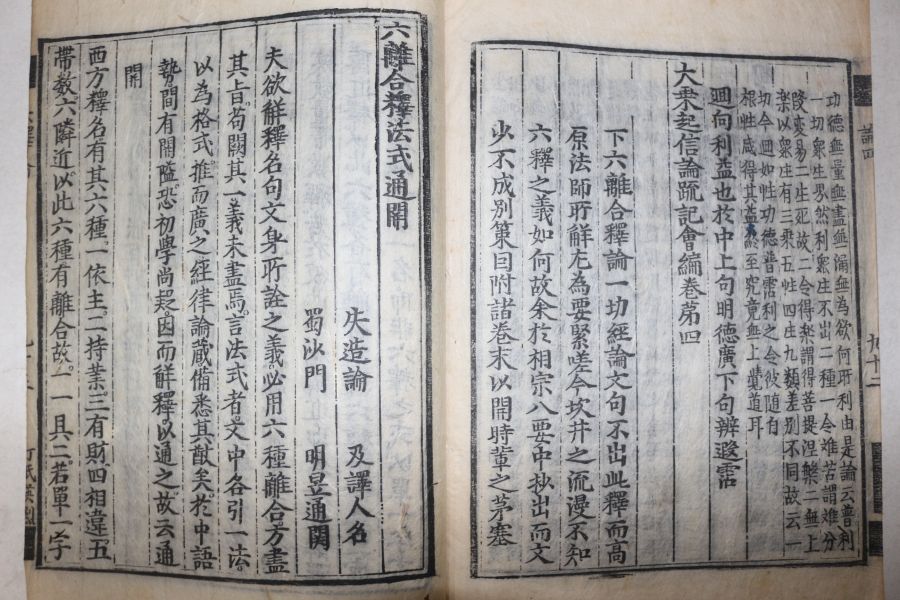 論四
九十二
功德無量無盡無漏無為欲何所利由是論云普利
一切衆生界然利衆生不出二種一令难苦謂难分
陵变易二生死故二令得楽謂得菩提涅槃二無上
楽以衆庄有三乗五性四庄九類差别不同故云一
切今迴如性功德普霑利之令彼随自
根性咸得其益終至究竟無上覺道耳
迴向利益也於中上句明德廣下句辨遐霑
大乗起信論疏記會編巻苐四
下六離合釋論一切經論文句不出此釋而高
原法師所解尤為要緊嗟今坎井之流漫不知
六釋之義如何故余於相宗八要中抄出而文
少不成别策因附諸巻末以開時輩之茅塞
六離合釋法式通關
失造論 及譯人名
蜀沙門 明昱通関
夫欲解釋名句文身所詮之義必用六種離合方盡
其旨苟闕其一義未盡焉言法式者文中各引一法
以為格式推而廣之經律論蔵備悉其猷矣於中語
勢間有開隘恐初學尚疑因而解釋以通之故云通
關
西方釋名有其六種一依主二持業三有財四相違五
帶數六隣近以此六種有離合故一一具二若單一字